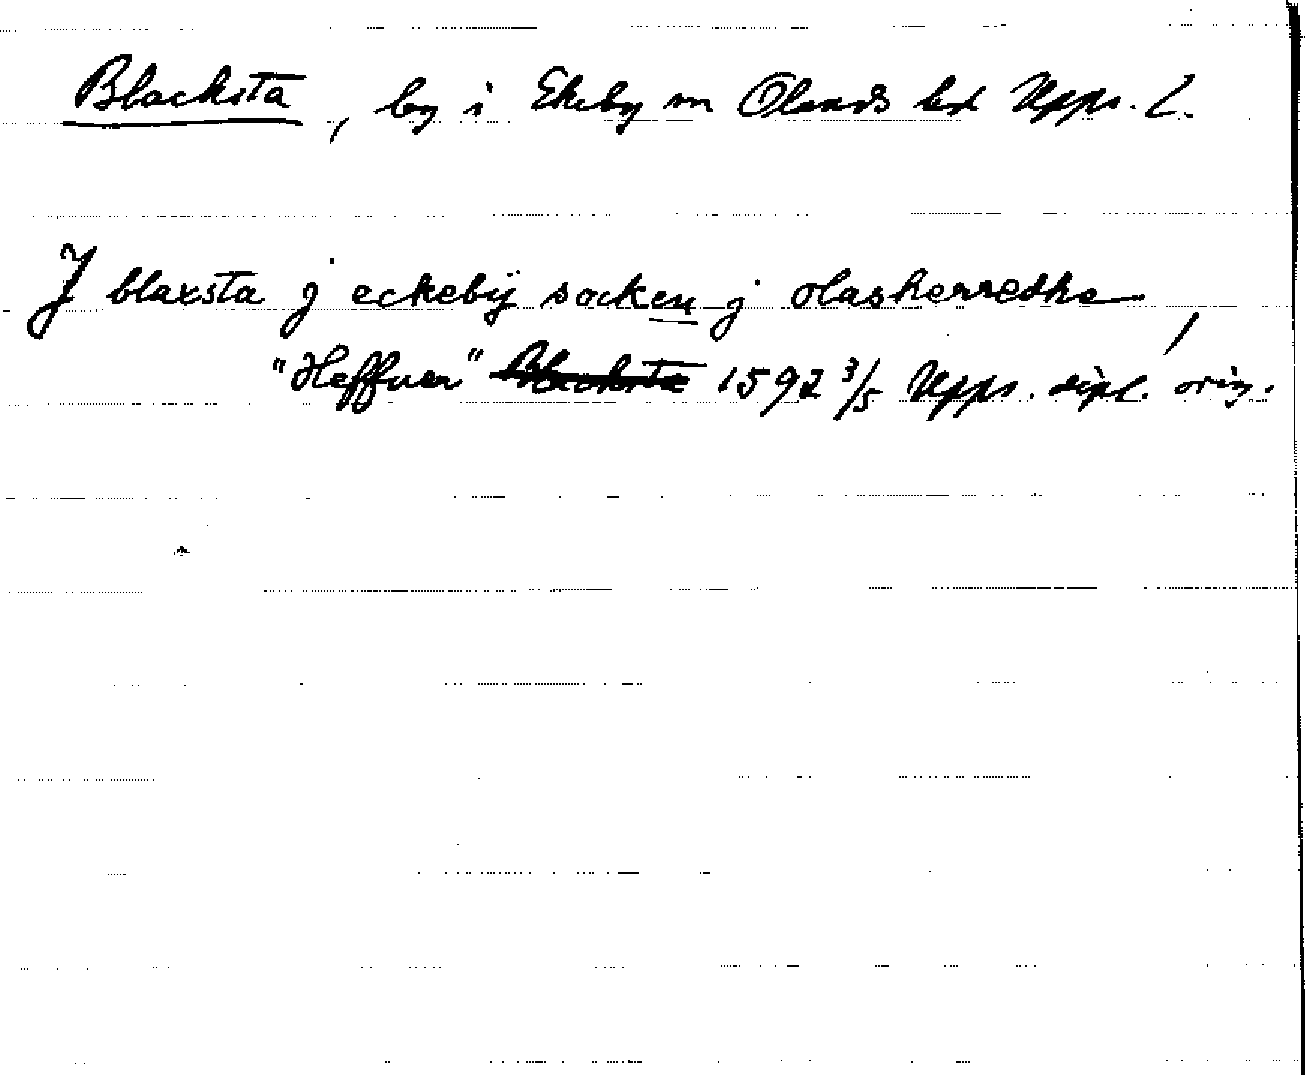 Blacksta, by i Ekeby sn Olands hd Upps. L.
J blaxsta j eckebÿ socken j olasherredhe
"Heffner" 1592 3/5 Upps. dipl. orig.